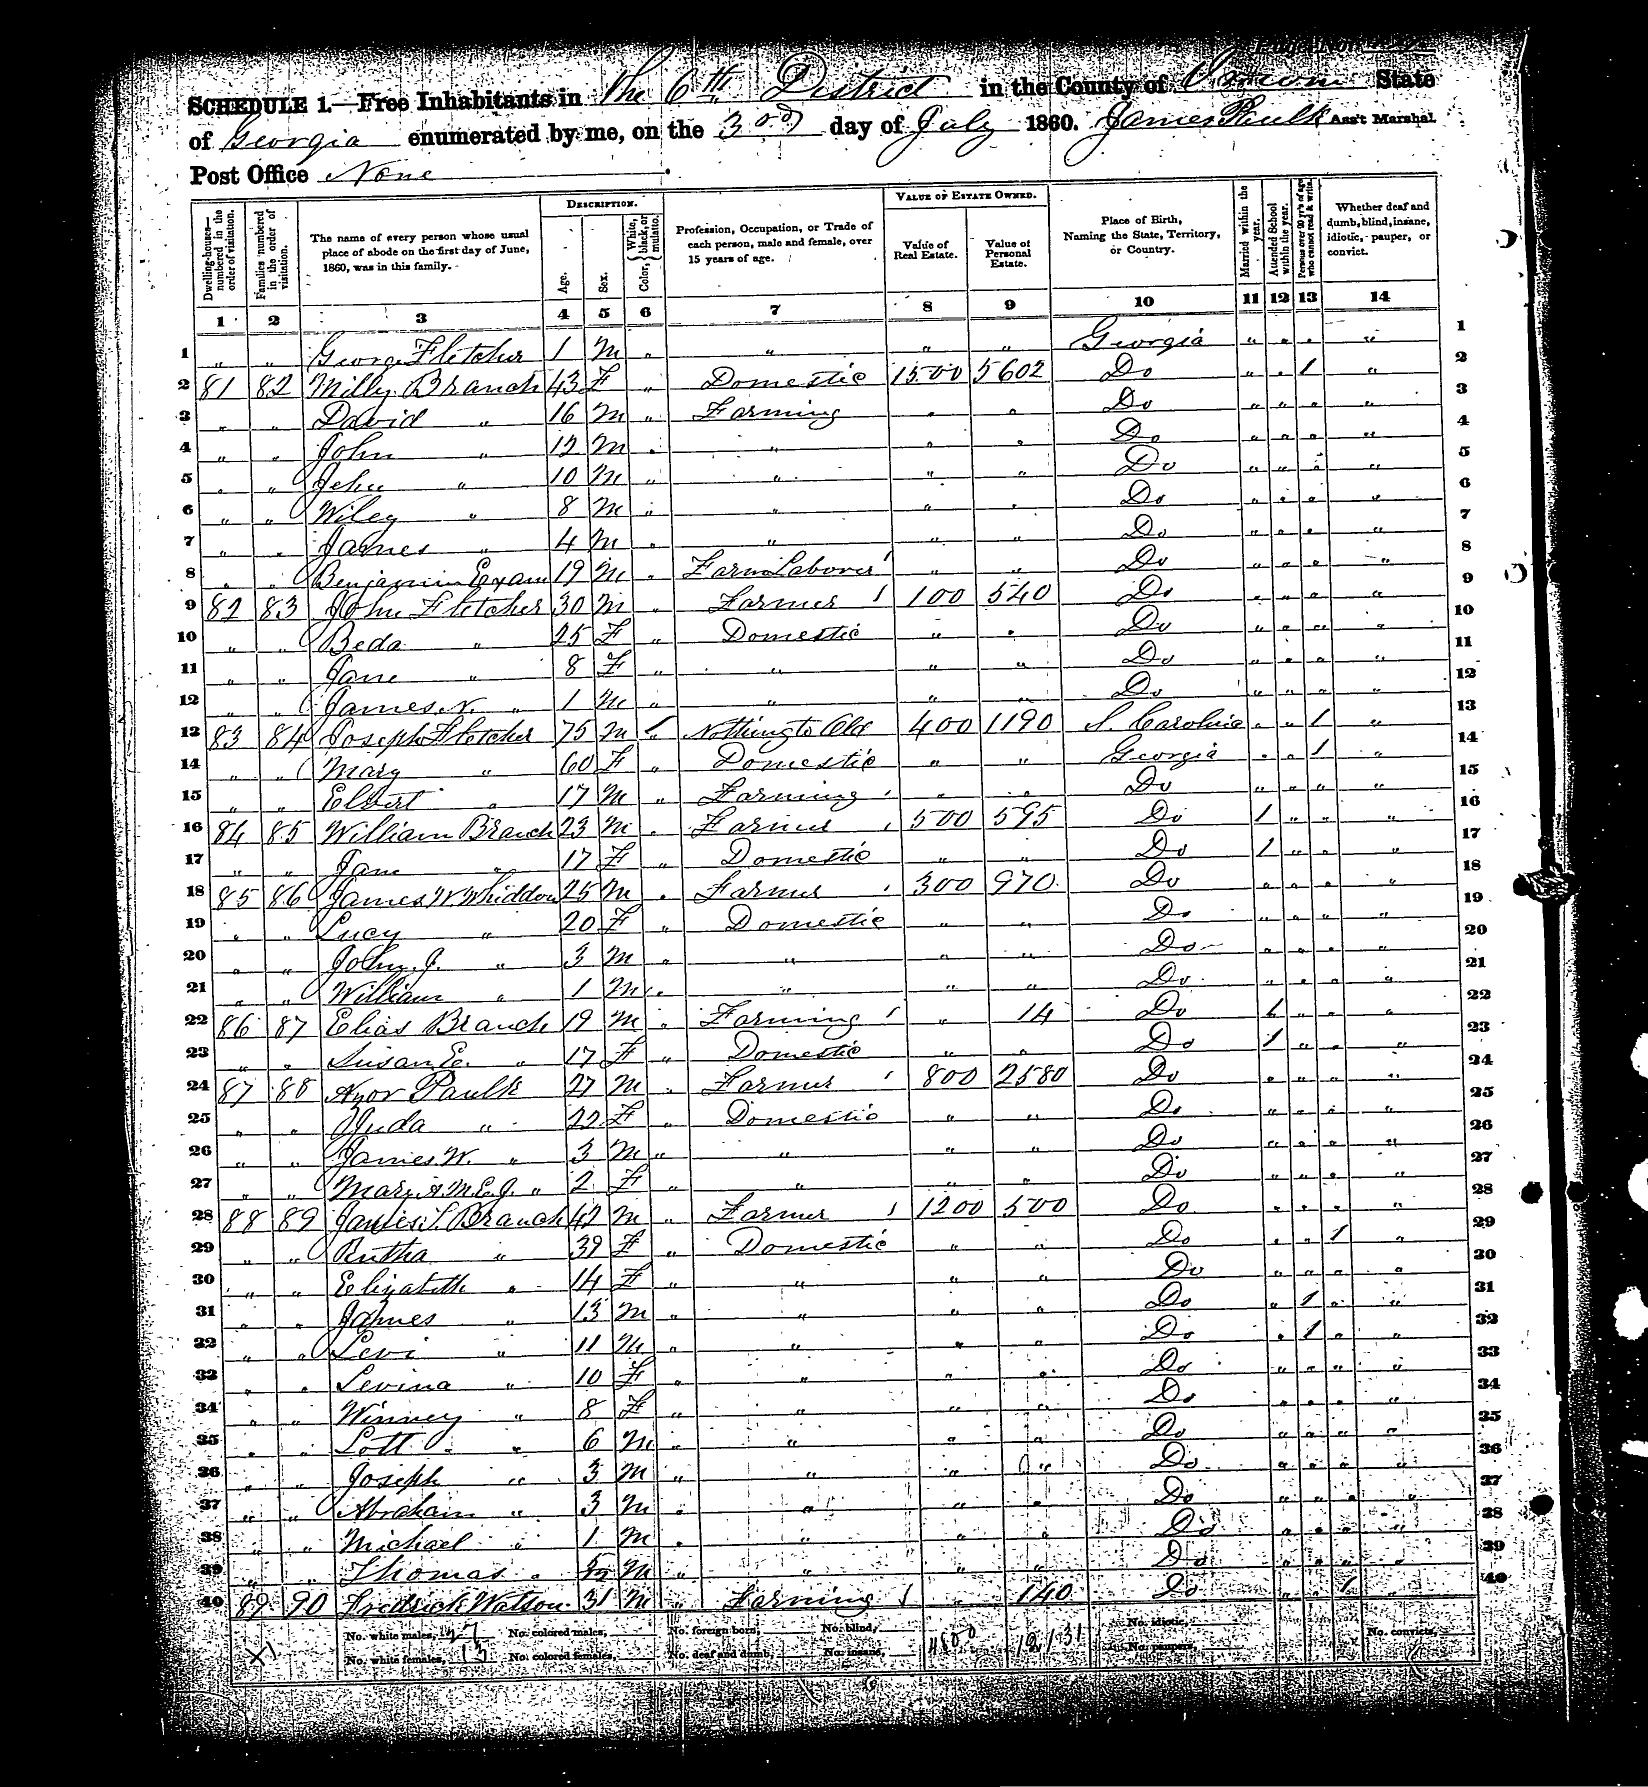 SCHEDULE 1.—Free Inhabitants in The 6th District in the County of State
of Georgia enumerated by me, on the 3rd day of July 1860. James Paulk Ass't Marshal.
Post Office None
Dwelling-houses—numbered in the order of visitation.
Families numbered in the order of visitation.
The name of every person whose usual place of abode on the first day of June, 1860, was in this family.
DESCRIPTION.
Age.
Sex.
Color, { White, black, or mulatto.
Profession, Occupation, or Trade of each person, male and female, over 15 years of age.
VALUE OF ESTATE OWNED.
Value of Real Estate.
Value of Personal Estate.
Place of Birth, Naming the State, Territory, or Country.
Married within the year.
Attended School within the year.
Persons over 20 y'rs of age who cannot read & write.
Whether deaf and dumb, blind, insane, idiotic, pauper, or convict.
1 2 3 4 5 6 7 8 9 10 11 12 13 14
1 " " George Fletcher 1 M " " " " Georgia " " " " 1
2 81 82 Milly Branch 43 F " Domestic 1500 5602 Do " " 1 " 2
3 " " David " 16 M " Farming " " Do " " " " 3
4 " " John " 12 M " " " " Do " " " " 4
5 " " Jehu " 10 M " " " " Do " " " " 5
6 " " Wiley " 8 M " " " " Do " " " " 6
7 " " James " 4 M " " " " Do " " " " 7
8 " " Benjamin Exam 19 M " Farm Laborer " " Do " " " " 8
9 82 83 John Fletcher 30 M " Farmer 100 540 Do " " " " 9
10 " " Beda " 25 F " Domestic " " Do " " " " 10
11 " " Jane " 8 F " " " " Do " " " " 11
12 " " James N. " 1 M " " " " Do " " " " 12
13 83 84 Joseph Fletcher 75 M " Nothing to Old 400 1190 S. Carolina " " 1 " 13
14 " " Mary " 60 F " Domestic " " Georgia " " 1 " 14
15 " " Elbert " 17 M " Farming " " Do " " " " 15
16 84 85 William Branch 23 M " Farmer 500 595 Do 1 " " " 16
17 " " Jane " 17 F " Domestic " " Do 1 " " " 17
18 85 86 James W Whiddon 25 M " Farmer 300 970 Do " " " " 18
19 " " Lucy " 20 F " Domestic " " Do " " " " 19
20 " " John J. " 3 M " " " " Do " " " " 20
21 " " William " 1 M " " " " Do " " " " 21
22 86 87 Elias Branch 19 M " Farming " 14 Do 1 " " " 22
23 " " Susan E. " 17 F " Domestic " " Do 1 " " " 23
24 87 88 Azor Paulk 27 M " Farmer 800 2580 Do " " " " 24
25 " " Juda " 22 F " Domestic " " Do " " " " 25
26 " " James W. " 3 M " " " " Do " " " " 26
27 " " Mary A.M.E.J. " 2 F " " " " Do " " " " 27
28 88 89 James S. Branch 42 M " Farmer 1200 500 Do " " " " 28
29 " " Rutha " 39 F " Domestic " " Do " " 1 " 29
30 " " Elizabeth " 14 F " " " " Do " " " " 30
31 " " James " 13 M " " " " Do " 1 " " 31
32 " " Levi " 11 M " " " " Do " 1 " " 32
33 " " Levina " 10 F " " " " Do " " " " 33
34 " " Winney " 8 F " " " " Do " " " " 34
35 " " Lott " 6 M " " " " Do " " " " 35
36 " " Joseph " 3 M " " " " Do " " " " 36
37 " " Abraham " 3 M " " " " Do " " " " 37
38 " " Michael " 1 M " " " " Do " " " " 38
39 " " Thomas " M " " " " Do " " " " 39
40 89 90 Fredrick Watson 31 M " Farming " 140 Do " " 1 " 40
No. white males, 27 No. colored males, No. foreign born, No. blind, 4800 12,131 No. idiotic,
No. white females, 13 No. colored females, No. deaf and dumb, No. insane, No. paupers, No. convicts,